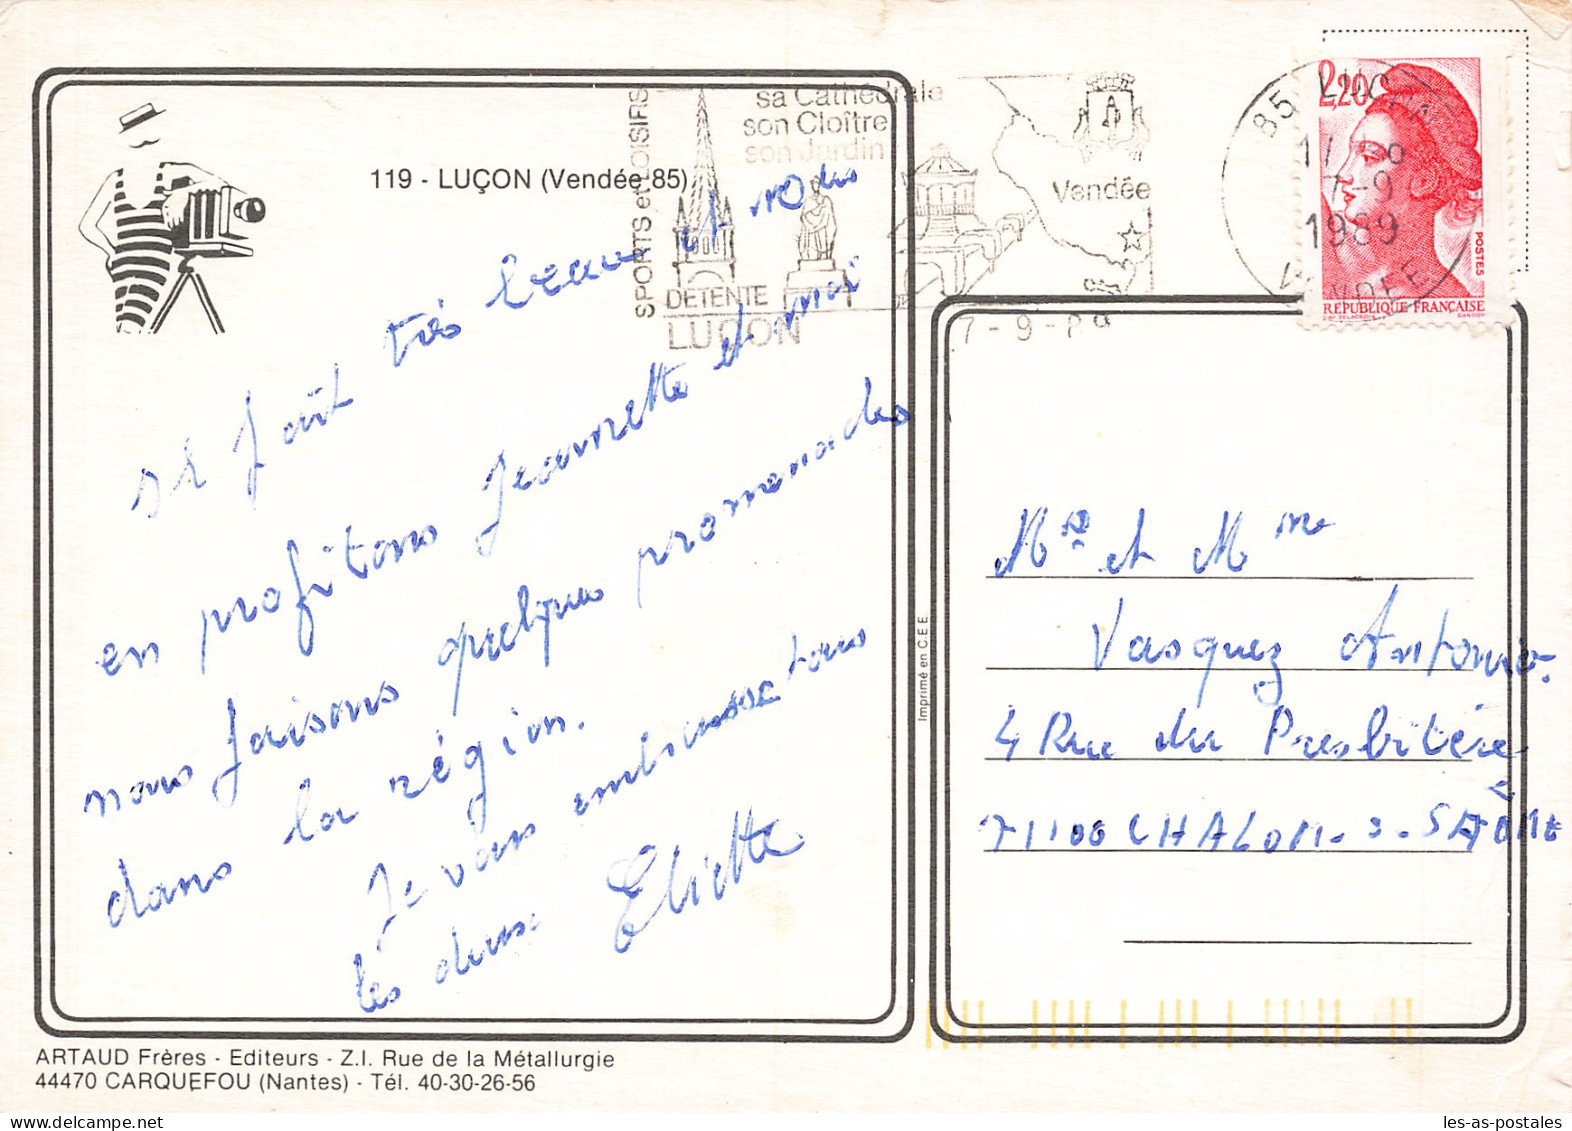 119 - LUÇON (Vendée 85)
SPORTS et LOISIRS
DETENTE
LUÇON
sa Cathédrale
son Cloître
son Jardin
Vendée
7-9-89
85 LUÇON
17 H
7-9
1989
VENDEE
2,20
POSTES
REPUBLIQUE FRANÇAISE
Il fait très beau et nous
en profitons Jeannette et moi
nous faisons quelques promenades
dans la région.
Je vous embrasse tous
les deux.
Eliette
Imprimé en C.E.E
Mr et Mme
Vasquez Antonio.
4 Rue du Presbitère
71100 CHALON-S-SAÔNE
ARTAUD Frères - Editeurs - Z.I. Rue de la Métallurgie
44470 CARQUEFOU (Nantes) - Tél. 40-30-26-56
les-as-postales